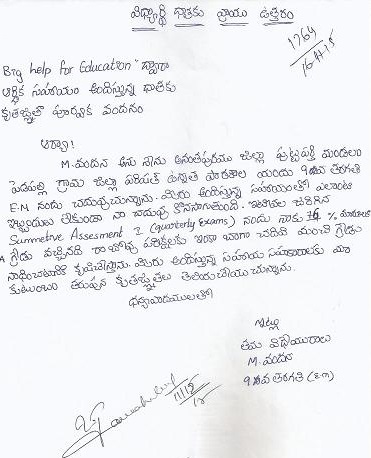 విద్యార్థి దాతకు వ్రాయు ఉత్తరం
1764
16-11-15
Big help for Education" ద్వారా
ఆర్థిక సహాయం అందిస్తున్న దాతకు
కృతజ్ఞతా పూర్వక వందనం
ఆర్యా!
M.వందన అను నేను అనంతపురము జిల్లా పుట్టపర్తి మండలం
పెడపల్లి గ్రామ జిల్లా పరిషత్ ఉన్నత పాఠశాల యందు 9వ తరగతి
E.M నందు చదువుచున్నాను. మీరు అందిస్తున్న సహాయంతో ఎలాంటి
ఇబ్బందులు లేకుండా నా చదువు కొనసాగుతుంది. ఇటీవల జరిగిన
Summetive Assesment 1 (quarterly Exams) నందు నాకు %
A గ్రేడు వచ్చినది రాబోవు పరీక్షలకు ఇంకా బాగా చదివి మంచి గ్రేడు
సాధించుటకు కృషిచేస్తాను. మీరు అందిస్తున్న సహాయ సహకారాలకు మా
కుటుంబం తరుపున కృతజ్ఞతలు తెలియచేయుచున్నాను.
ధన్యవాదములతో
ఇట్లు
తమ విధేయురాలు
M.వందన
9వ తరగతి (E.M)